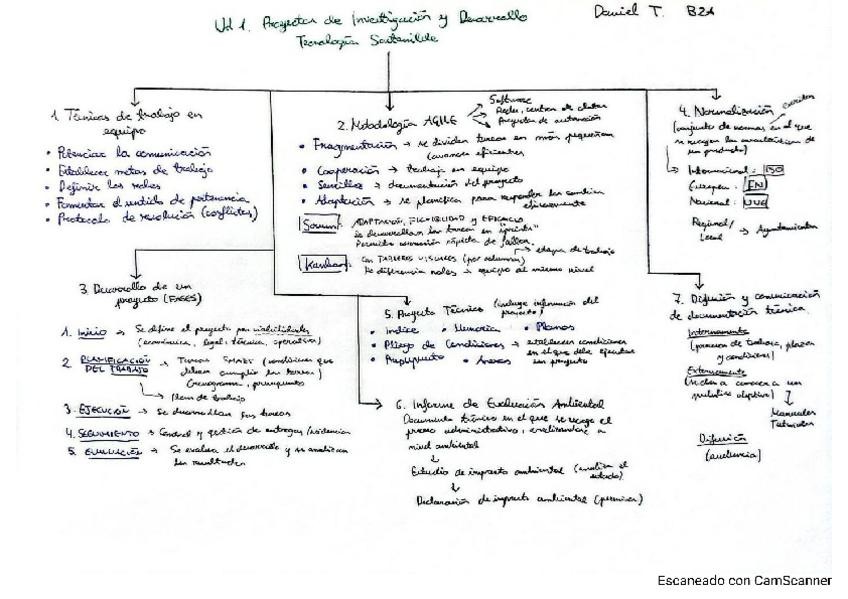 Ud 1. Proyectos de Investigación y Desarrollo
Tecnologías Sostenible
Daniel T. B2A
1. Técnicas de trabajo en
equipo
• Potenciar la comunicación
• Establecer metas de trabajo
• Definir los roles
• Fomentar el sentido de pertenencia
• Protocolo de resolución (conflictos)
2. Metodología AGILE
Software
Redes, centros de datos
Proyectos de automoción
• Fragmentación → se dividen tareas en más pequeñas
(avances eficientes)
• Cooperación → trabajo en equipo
• Sencillez → documentación del proyecto
• Adaptación → se planifica para responder los cambios
eficientemente
Scrum
ADAPTACIÓN, FLEXIBILIDAD Y EFICACIA
Se desarrollan las tareas en "sprints"
Permite corrección rápida de fallos.
Kanban
Con TABLEROS VISUALES (por columnas) → etapas de trabajo
No diferencia roles → equipo al mismo nivel
4. Normalización
(conjunto de normas en el que
se recogen las características de
un producto)
Internacional: ISO
Europea: EN
Nacional: UNE
Regional/
Local → Ayuntamientos
3. Desarrollo de un
proyecto (FASES)
1. Inicio → Se define el proyecto por viabilidades
(económica, legal, técnica, operativa)
2. PLANIFICACIÓN
DEL TRABAJO → Tareas SMART (condiciones que
deben cumplir las tareas)
Cronograma, presupuestos
Plan de trabajo
3. EJECUCIÓN → Se desarrollan las tareas
4. SEGUIMIENTO → Control y gestión de entregas/incidencias
5. EVALUACIÓN → Se evalúa el desarrollo y se analizan
los resultados
5. Proyecto Técnico (incluye información del
proyecto)
• Indice • Memoria • Planos
• Pliego de Condiciones → establecen condiciones
en el que debe ejecutar
un proyecto
• Presupuesto • Anexos
6. Informe de Evaluación Ambiental
Documento técnico en el que se recoge el
proceso administrativo, analizándose a
nivel ambiental
Estudio de impacto ambiental (analiza el
estado)
Declaración de impacto ambiental (permisos)
7. Difusión y comunicación
de documentación técnica.
Internamente
(procesos de trabajo, plazos
y condiciones)
Externamente
(se da a conocer a un
público objetivo)
Manuales
Tutoriales
Difusión
(audiencia)
Escaneado con CamScanner